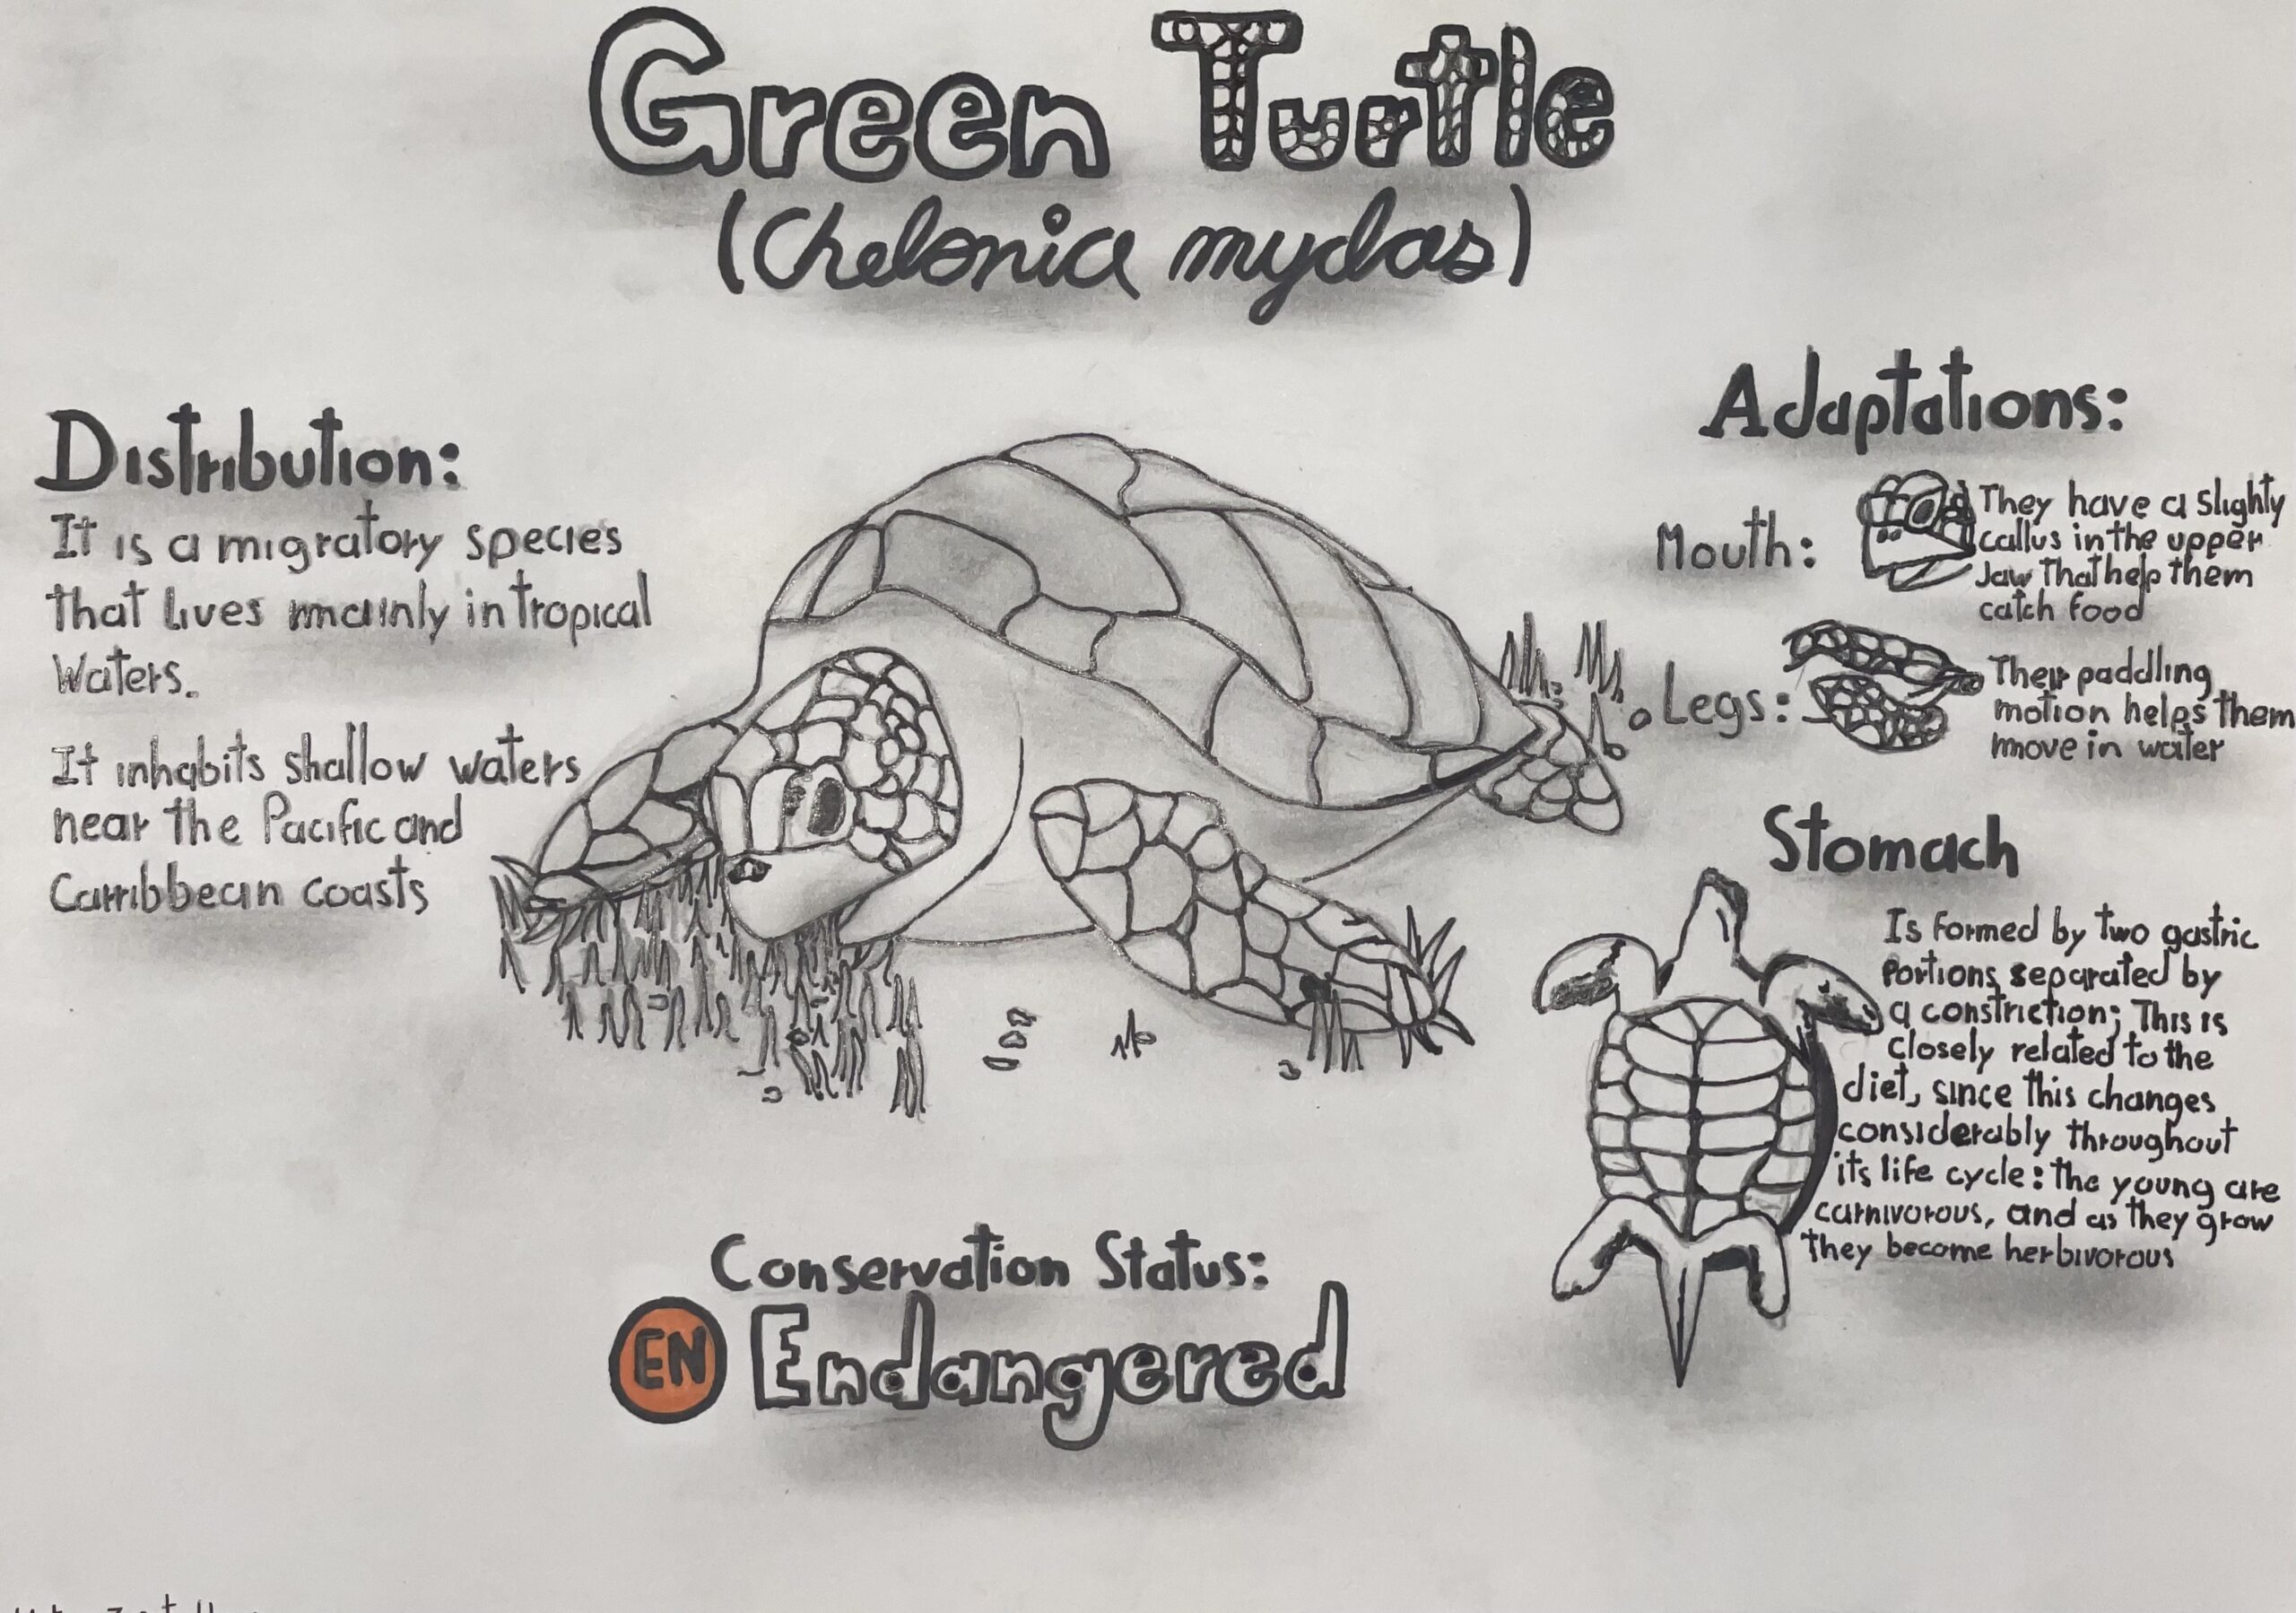 Green Turtle
(Chelonia mydas)
Distribution:
It is a migratory species
that lives mainly in tropical
Waters.
It inhabits shallow waters
near the Pacific and
Carribbean coasts
Adaptations:
Mouth:
They have a slighty
callus in the upper
Jaw that help them
catch food
Legs:
Their paddling
motion helps them
move in water
Stomach
Is formed by two gastric
portions separated by
a constriction; This is
closely related to the
diet, since this changes
considerably throughout
its life cycle: the young are
carnivorous, and as they grow
they become herbivorous
Conservation Status:
EN Endangered